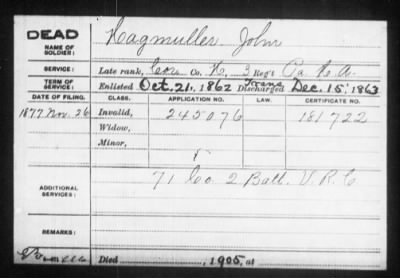 DEAD
NAME OF SOLDIER: Hagmuller John
SERVICE: Late rank, Cor Co. H, 3 Reg't Pa. H. A.
TERM OF SERVICE: Enlisted Oct. 21, 1862 Trans Discharged Dec. 15, 1863
DATE OF FILING. CLASS. APPLICATION NO. LAW. CERTIFICATE NO.
1877 Nov. 26 Invalid, 245076 181722
Widow,
Minor,
ADDITIONAL SERVICES: 71 Co 2 Batt. V. R. C
REMARKS:
Died , 1905, at